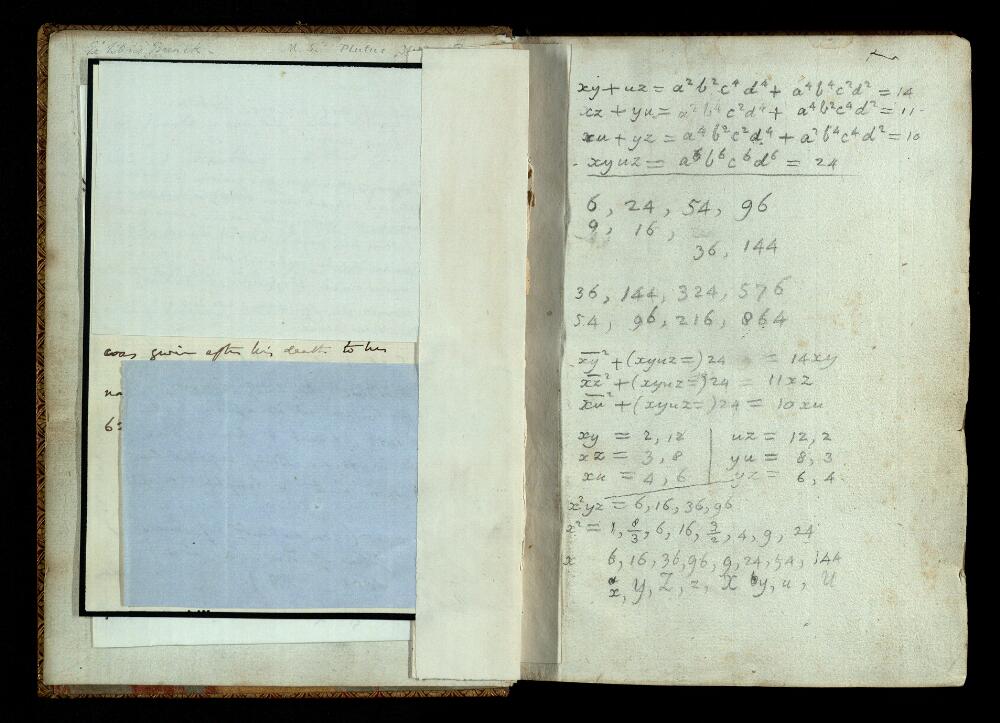 was given after his death to his
na
6:
xy + uz = a²b²c⁴d⁴ + a⁴b⁴c²d² = 14
xz + yu = a²b⁴c²d⁴ + a⁴b²c⁴d² = 11
xu + yz = a⁴b²c²d⁴ + a²b⁴c⁴d² = 10
xyuz = a⁶b⁶c⁶d⁶ = 24
6, 24, 54, 96
9, 16,
36, 144
36, 144, 324, 576
54, 96, 216, 864
x̅y̅² + (xyuz=)24 = 14xy
x̅z̅² + (xyuz=)24 = 11xz
x̅u̅² + (xyuz=)24 = 10xu
xy = 2, 12 | uz = 12, 2
xz = 3, 8 | yu = 8, 3
xu = 4, 6 | yz = 6, 4
x²yz = 6, 16, 36, 96
x² = 1, 8/3, 6, 16, 3/2, 4, 9, 24
x 6, 16, 36, 96, 9, 24, 54, 144
x, Y, Z, z, X, y, u, U